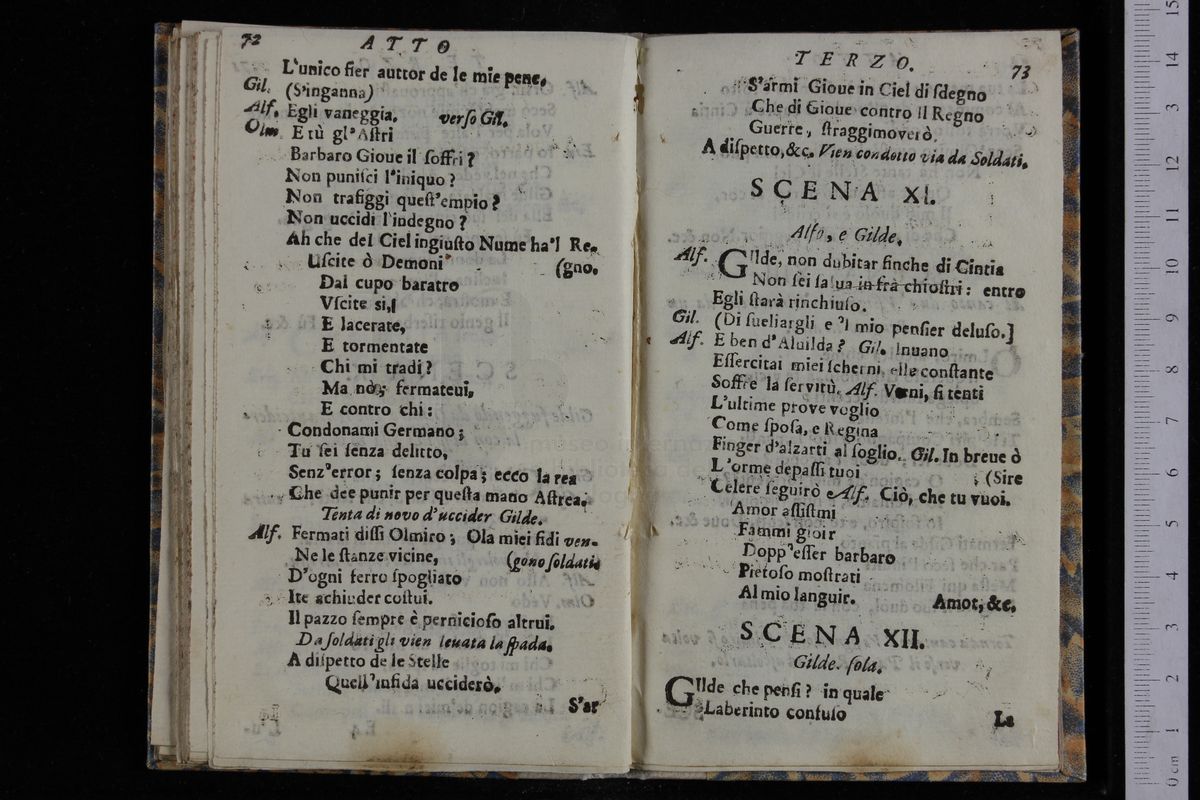 72
ATTO
L'unico fier auttor de le mie pene.
Gil. (S'inganna)
Alf. Egli vaneggia. verso Gil.
Olm. E tù gl'Astri
Barbaro Gioue il soffri?
Non punisci l'iniquo?
Non trafiggi quest'empio?
Non uccidi l'indegno?
Ah che del Ciel ingiusto Nume ha'l Re-
Uscite ò Demoni (gno.
Dal cupo baratro
Vscite si,
E lacerate,
E tormentate
Chi mi tradi?
Ma nò; fermateui,
E contro chi:
Condonami Germano;
Tu sei senza delitto,
Senz'error; senza colpa; ecco la rea
Che dee punir per questa mano Astrea.
Tenta di novo d'uccider Gilde.
Alf. Fermati dissi Olmiro; Ola miei fidi ven-
Ne le stanze vicine, (gono soldati
D'ogni ferro spogliato
Ite achiuder costui.
Il pazzo sempre è pernicioso altrui.
Da soldati gli vien leuata la spada.
A dispetto de le Stelle
Quell'infida ucciderò.
S'ar
TERZO.
73
S'armi Gioue in Ciel di sdegno
Che di Gioue contro il Regno
Guerre, straggimoverò.
A dispetto, &c. Vien condotto via da Soldati.
SCENA XI.
Alfo, e Gilde.
Alf. GIlde, non dubitar finche di Cintia
Non sei salua infrà chiostri: entro
Egli starà rinchiuso.
Gil. (Di sueliargli e 'l mio pensier deluso.]
Alf. E ben d'Aluilda? Gil. Inuano
Essercitai miei scherni, elle constante
Soffre la servitù. Alf. Vanni, si tenti
L'ultime prove voglio
Come sposa, e Regina
Finger d'alzarti al soglio. Gil. In breue ò
L'orme depassi tuoi (Sire
Celere seguirò Alf. Ciò, che tu vuoi.
Amor assistmi
Fammi gioir
Dopp'esser barbaro
Pietoso mostrati
Al mio languir. Amot, &c.
SCENA XII.
Gilde. sola.
GIlde che pensi? in quale
Laberinto confuso
La